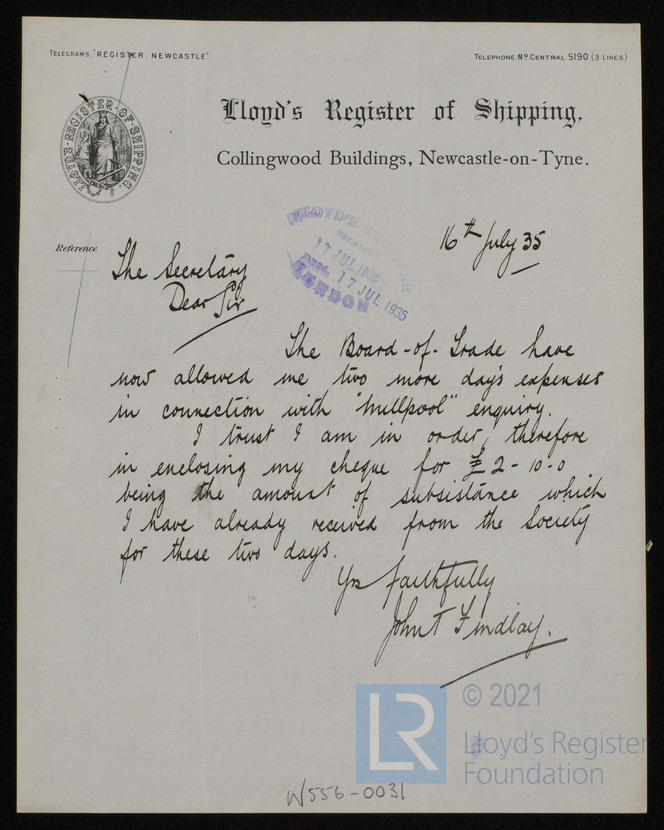 TELEGRAMS, "REGISTER. NEWCASTLE"
TELEPHONE Nº CENTRAL 5190 (3 LINES)
LLOYDS REGISTER OF SHIPPING.
Lloyd's Register of Shipping.
Collingwood Buildings, Newcastle-on-Tyne.
Reference
16th July 35
LLOYD'S
RECEIVED
17 JUL 1935
17 JUL 1935
LONDON
The Secretary
Dear Sir
The Board-of-Trade have
now allowed me two more day's expenses
in connection with "Millpool" enquiry.
I trust I am in order, therefore
in enclosing my cheque for £2-10-0
being the amount of subsistance which
I have already received from the Society
for these two days.
Yrs faithfully
John T Findlay.
LR
© 2021
Lloyd's Register
Foundation
W556-0031